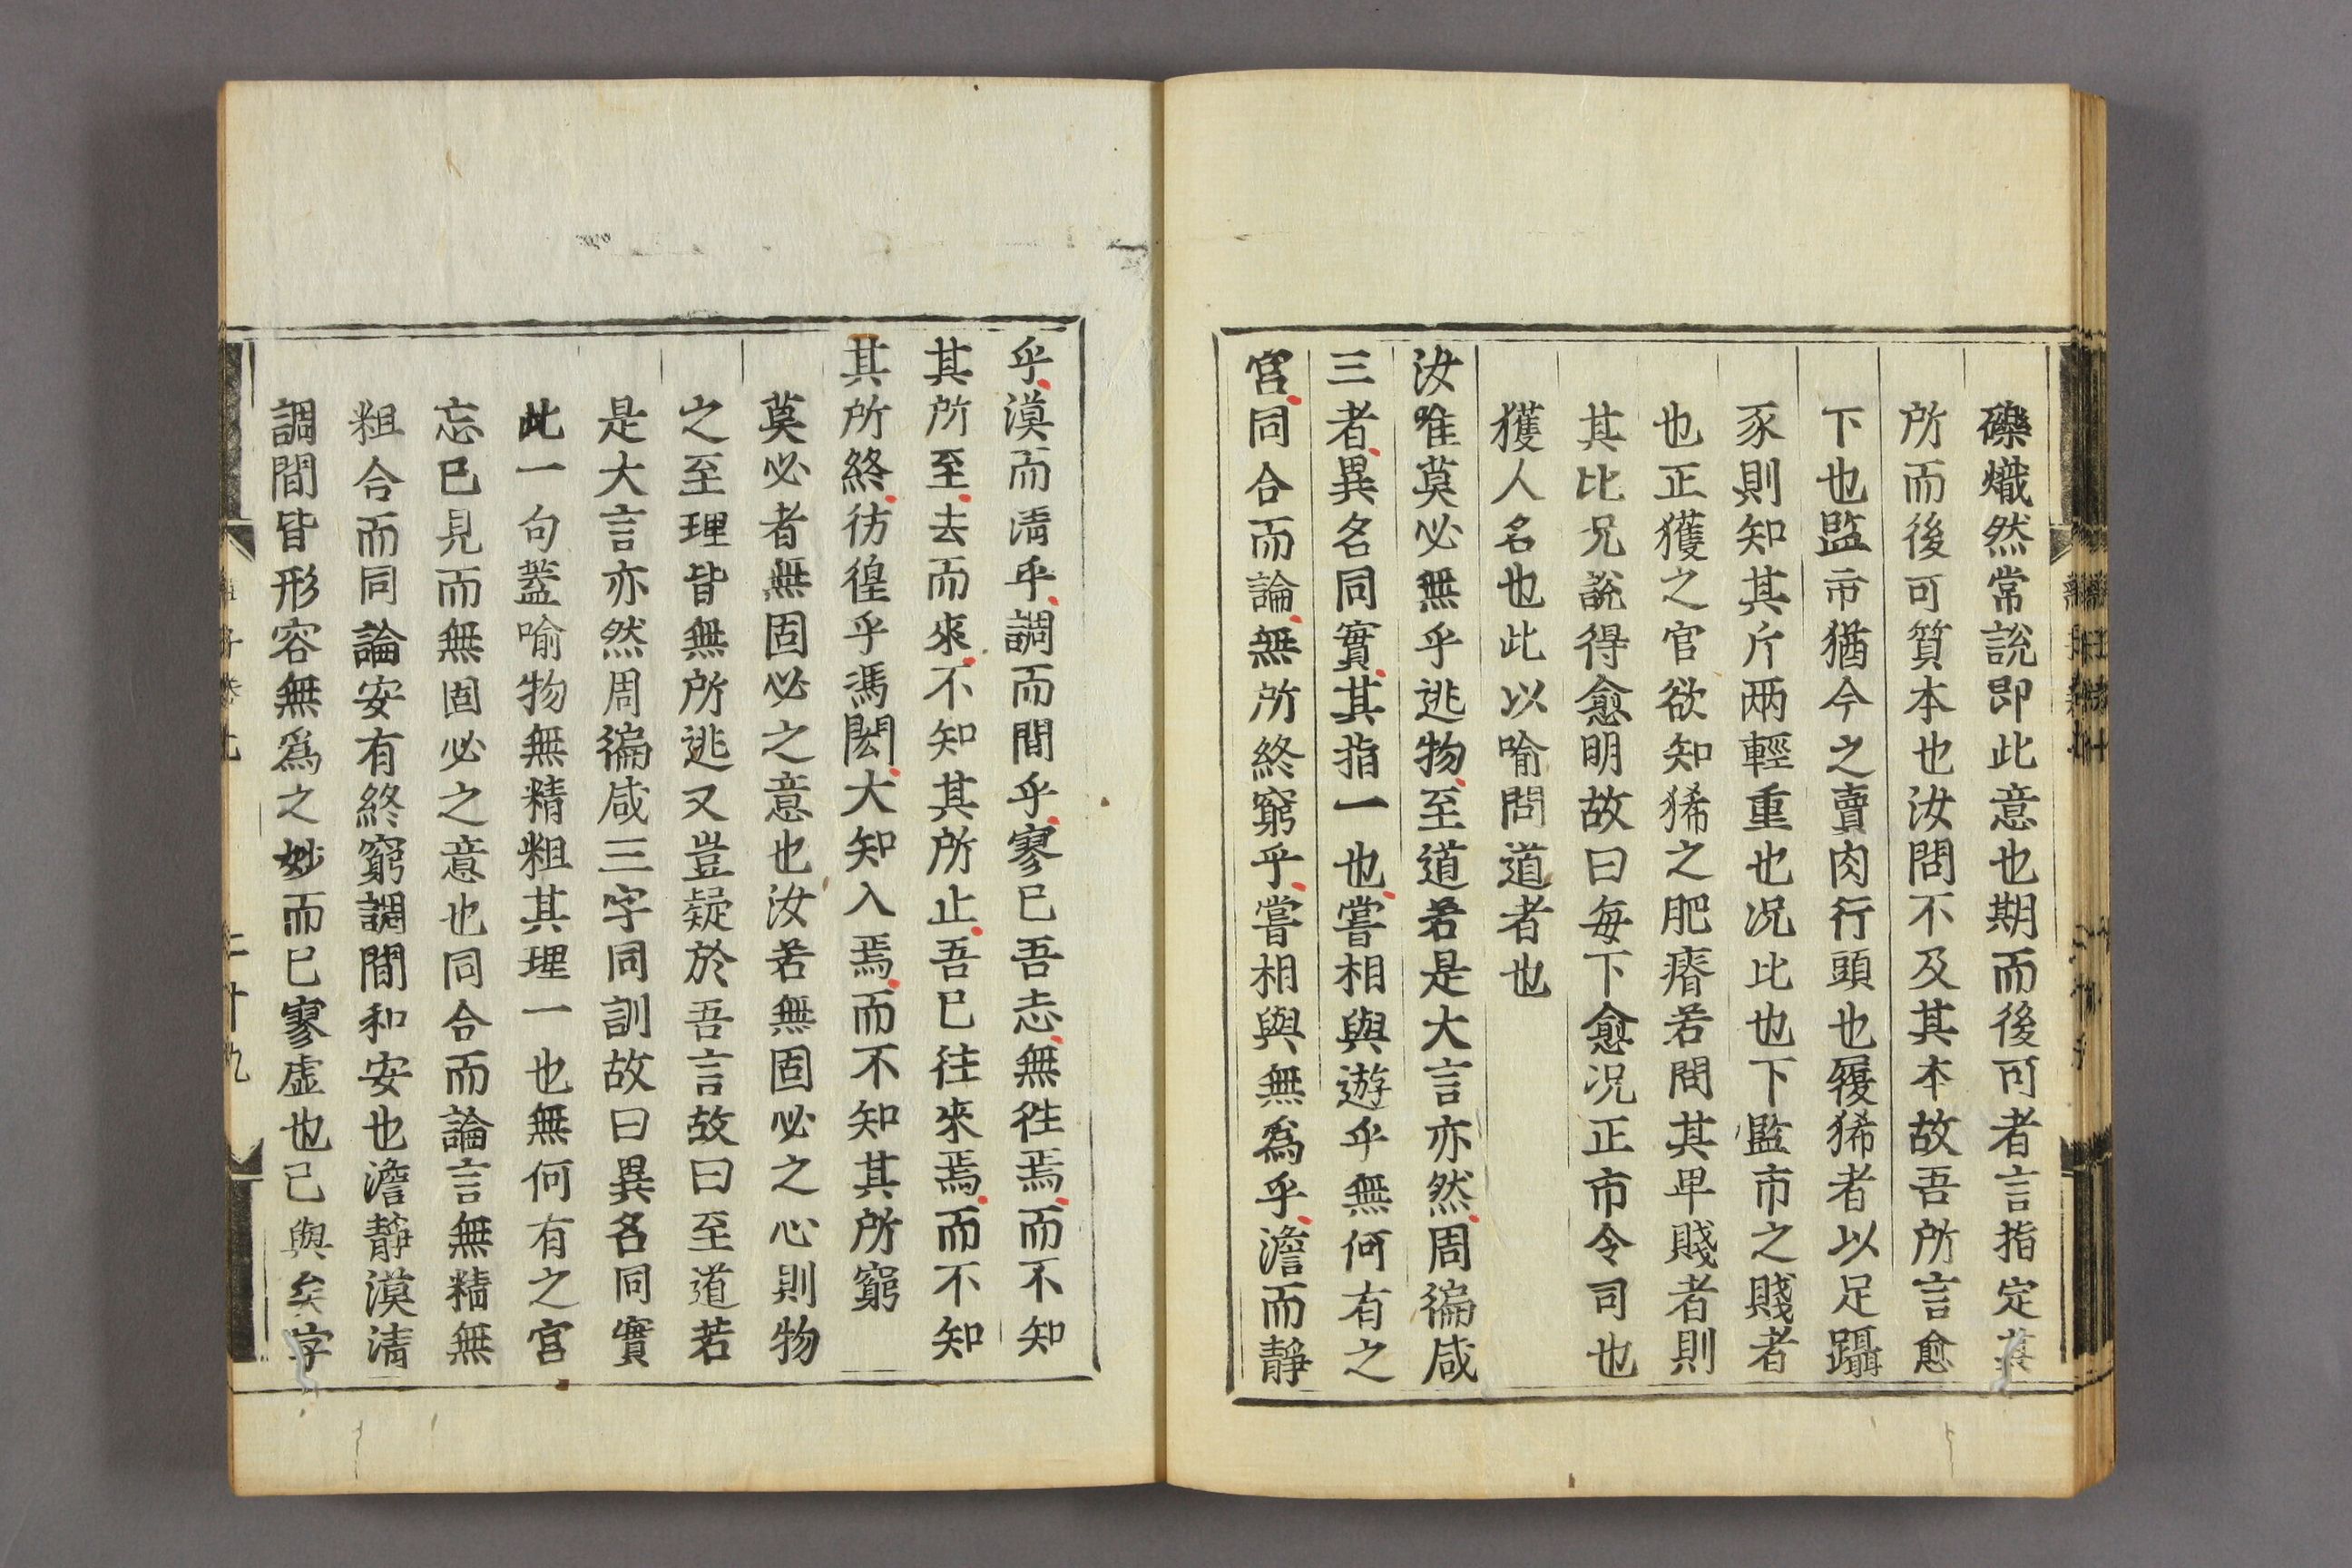 礫熾然常說即此意也期而後可者言指定其
所而後可質本也汝問不及其本故吾所言愈
下也監市猶今之賣肉行頭也履狶者以足躡
豕則知其斤兩輕重也况比也下監市之賤者
也正獲之官欲知狶之肥瘠若問其卑賤者則
其比况說得愈明故曰每下愈况正市令司也
獲人名也此以喻問道者也
汝唯莫必無乎逃物至道若是大言亦然周徧咸
三者異名同實其指一也嘗相與遊乎無何有之
宮同合而論無所終窮乎嘗相與無爲乎澹而靜
乎漠而淸乎調而閒乎寥已吾志無徃焉而不知
其所至去而來不知其所止吾已往來焉而不知
其所終彷徨乎馮閎大知入焉而不知其所窮
莫必者無固必之意也汝若無固必之心則物
之至理皆無所逃又豈疑於吾言故曰至道若
是大言亦然周徧咸三字同訓故曰異名同實
此一句蓋喻物無精粗其理一也無何有之宮
忘已見而無固必之意也同合而論言無精無
粗合而同論安有終窮調閒和安也澹靜漠淸
調閒皆形容無爲之妙而已寥虛也已與矣字
二十九